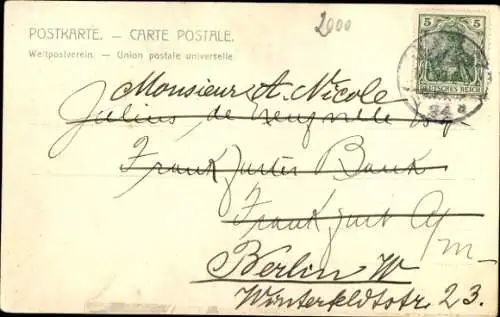 2000
POSTKARTE. – CARTE POSTALE.
Weltpostverein. – Union postale universelle.
5 5
DEUTSCHES REICH
Monsieur A. Nicole
Julius de Neufville Esq
Frankfurter Bank
Frankfurt a/
m—
Berlin W
Winterfeldtstr. 23.